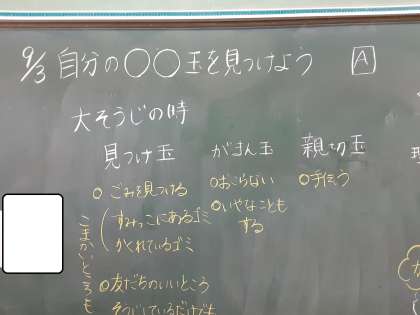 9/3 自分の〇〇玉を見つけよう A
大そうじの時
見つけ玉
○ごみを見つける
(すみっこにあるゴミ
かくれているゴミ
こまかいところも
◎友だちのいいところ
そうじしているだけでも
がまん玉
○おこらない
○いやなことも
する
親切玉
○手伝う